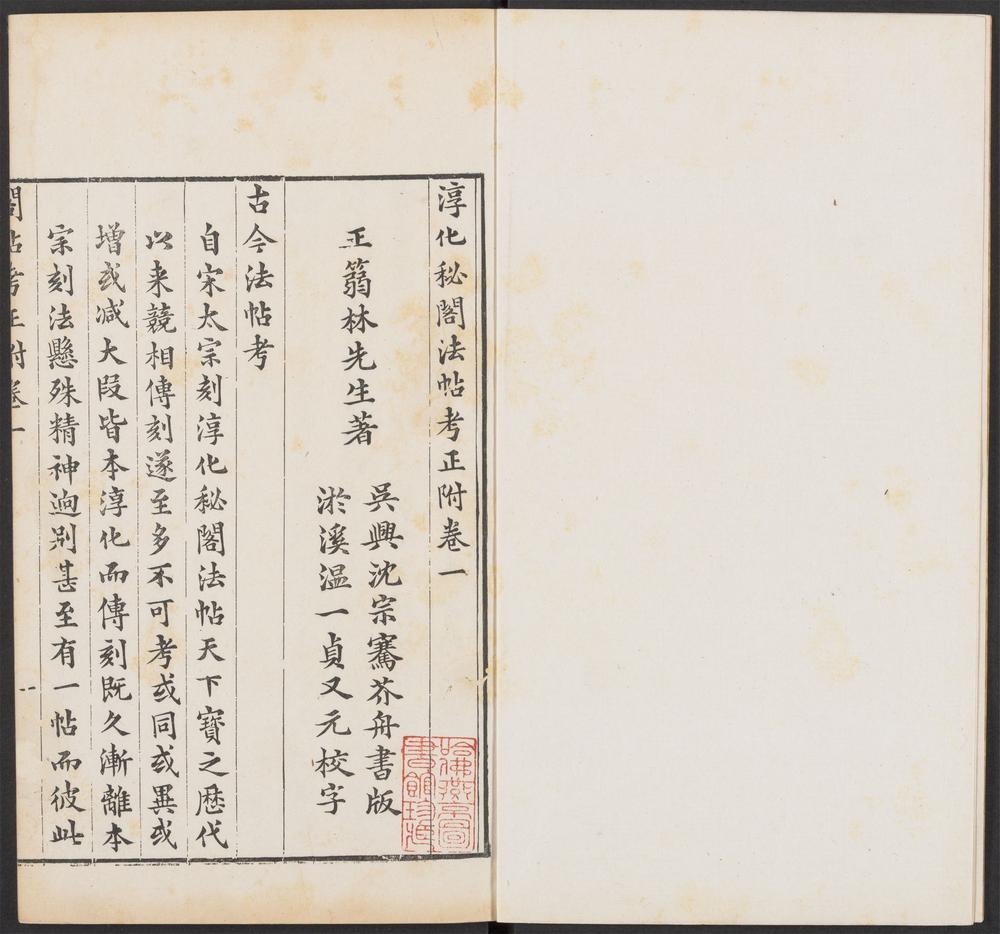 淳化秘閣法帖考正附卷一
吳興沈宗騫芥舟書版
王篛林先生著
淤溪温一貞又元校字
古今法帖考
自宋太宗刻淳化秘閣法帖天下寶之歴代
以来競相傳刻遂至多不可考或同或異或
增或减大段皆本淳化而傳刻既久漸離本
宗刻法懸殊精神逈别甚至有一帖而彼此
閣帖考正附卷一
哈佛燕京圖
書館珍藏